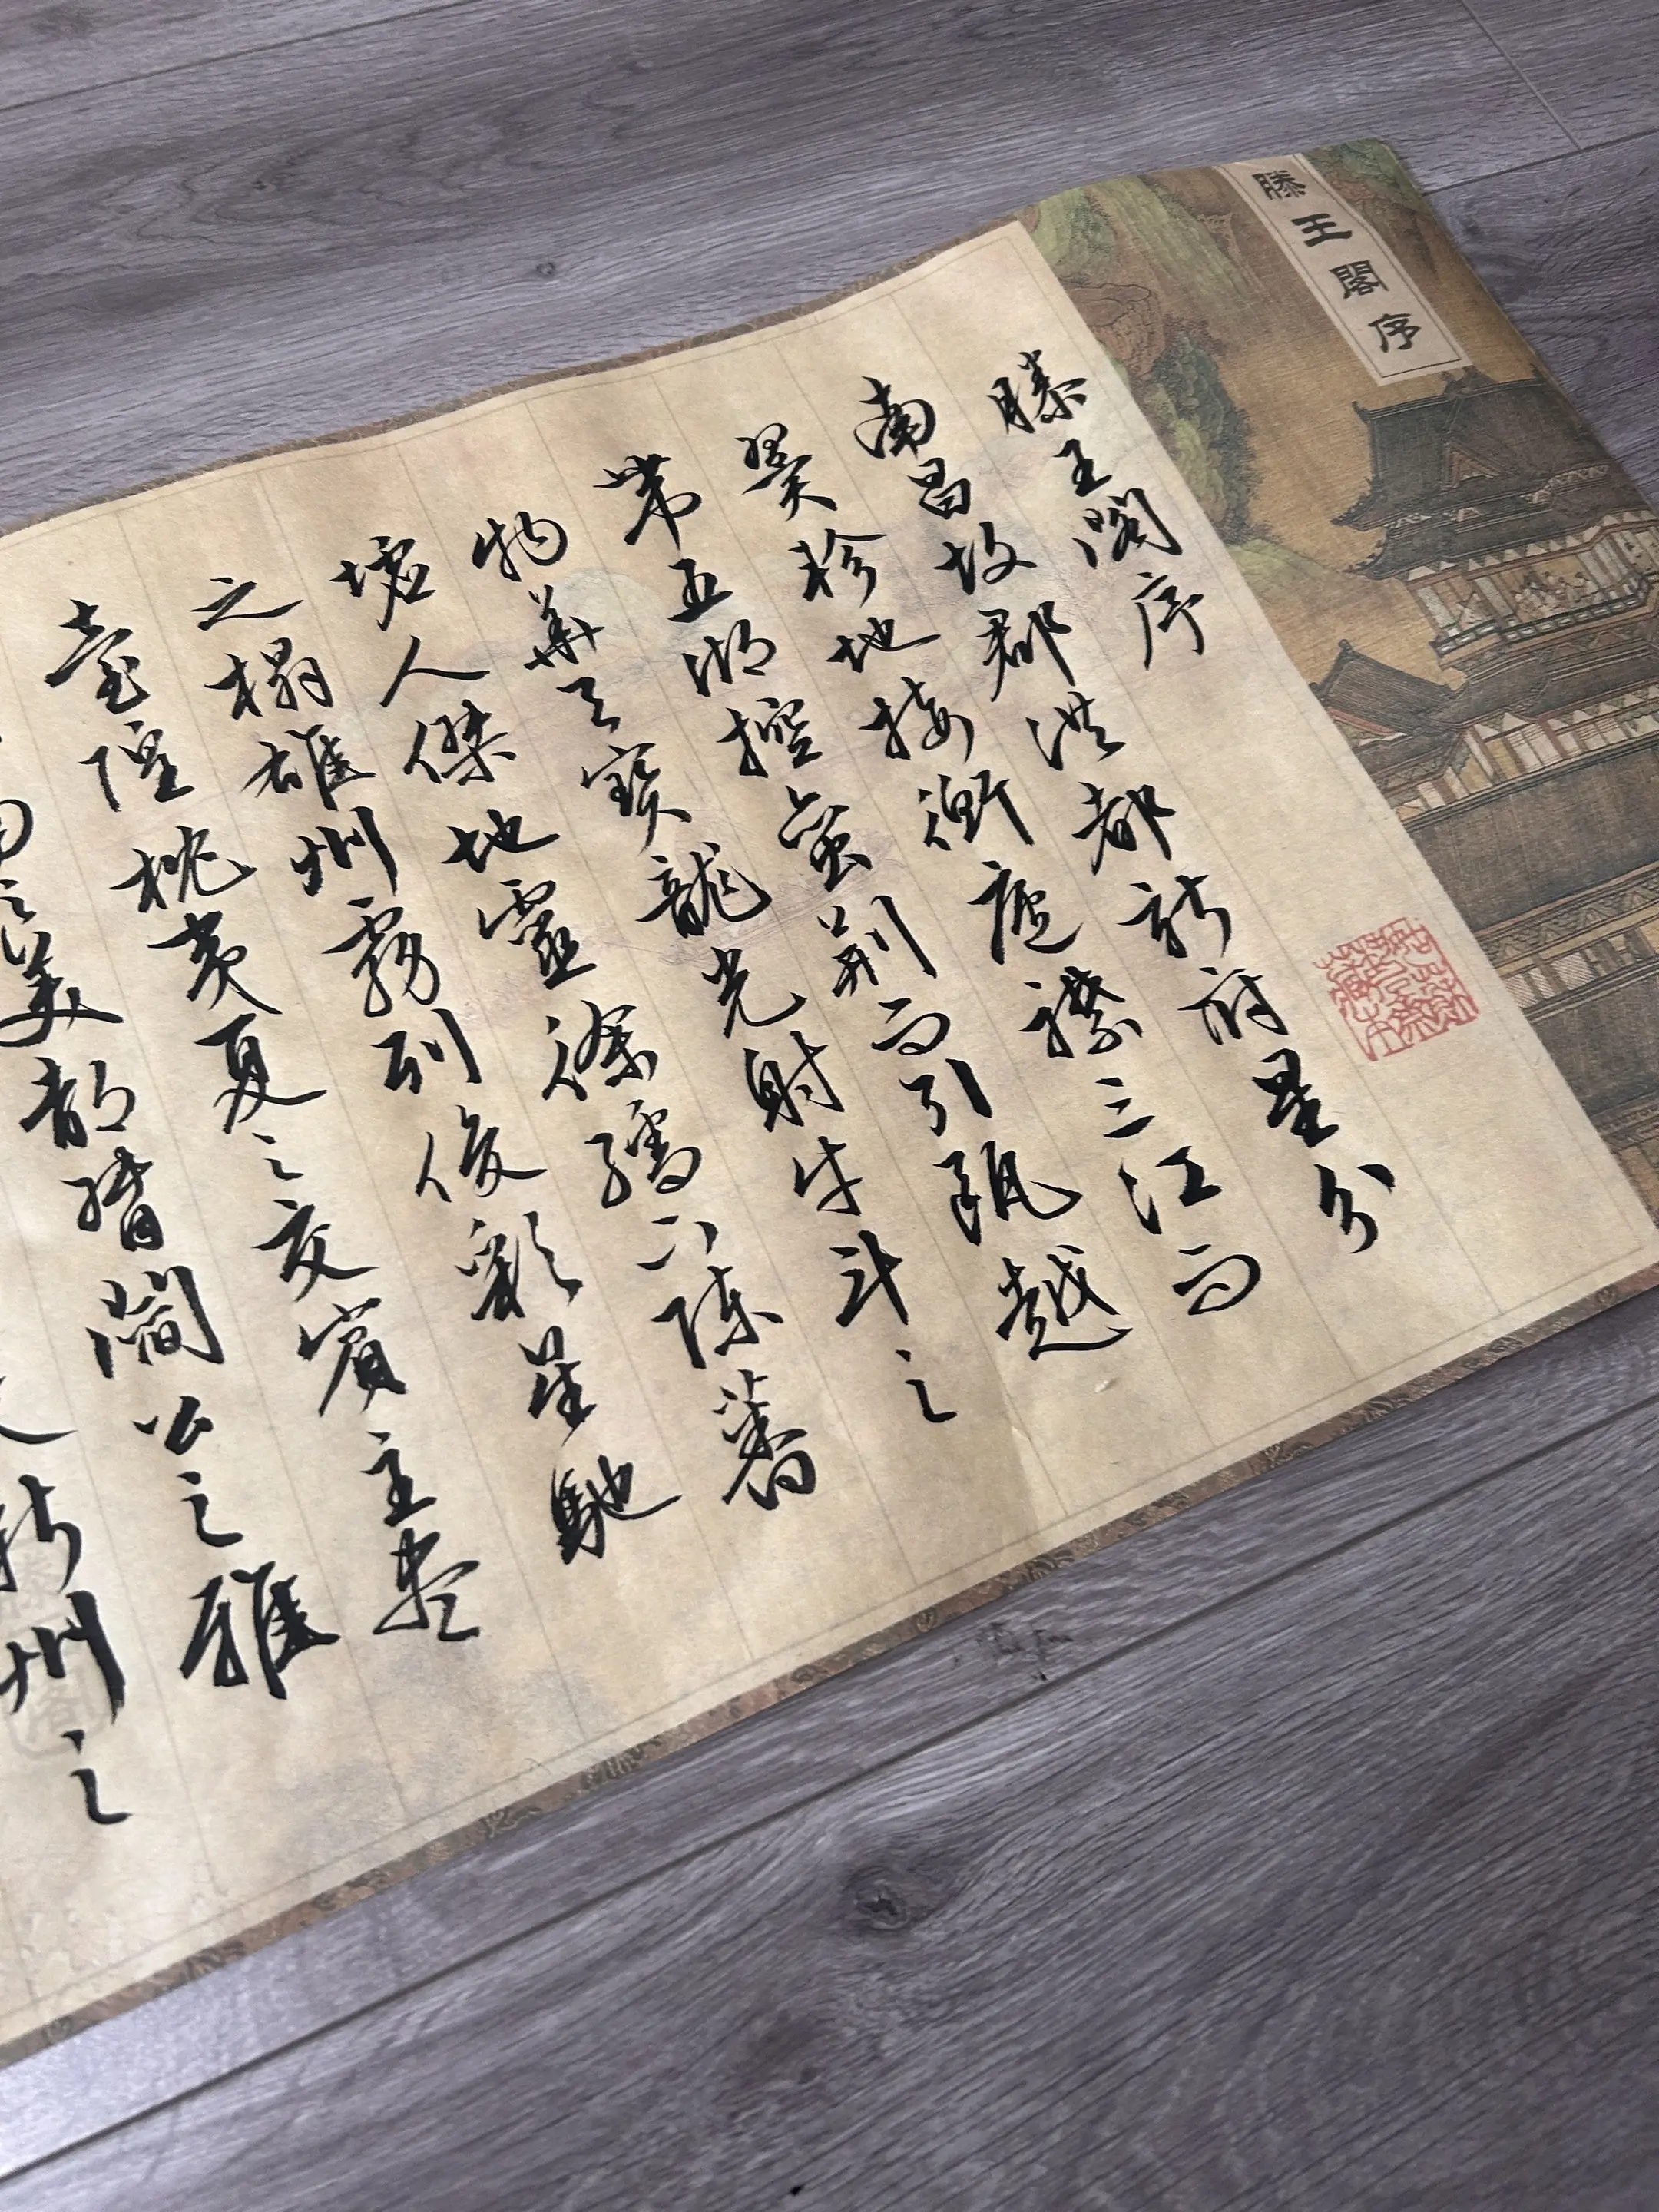 滕王閣序
滕王閣序
南昌故郡洪都新府星分
翼軫地接衡廬襟三江而
帶五湖控蠻荊而引甌越
物華天寶龍光射牛斗之
墟人傑地靈徐孺下陳蕃
之榻雄州霧列俊彩星馳
臺隍枕夷夏之交賓主盡
南之美都督閻公之雅
新州之